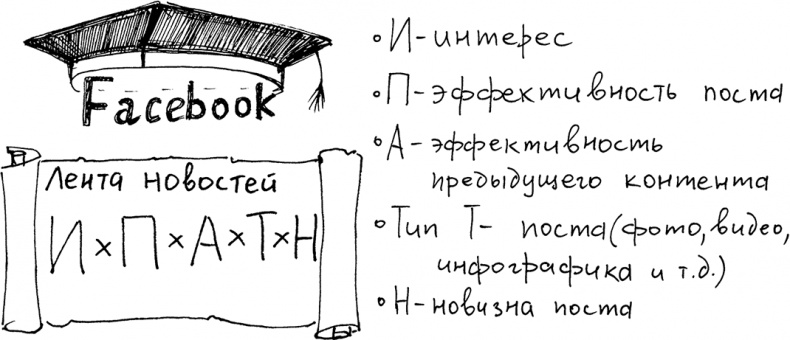 Facebook
Лента новостей
И×П×А×Т×Н
• И-интерес
• П-эффективность поста
• А-эффективность
предыдущего контента
• Тип Т- поста(фото,видео,
инфографика и т.д.)
• Н-новизна поста